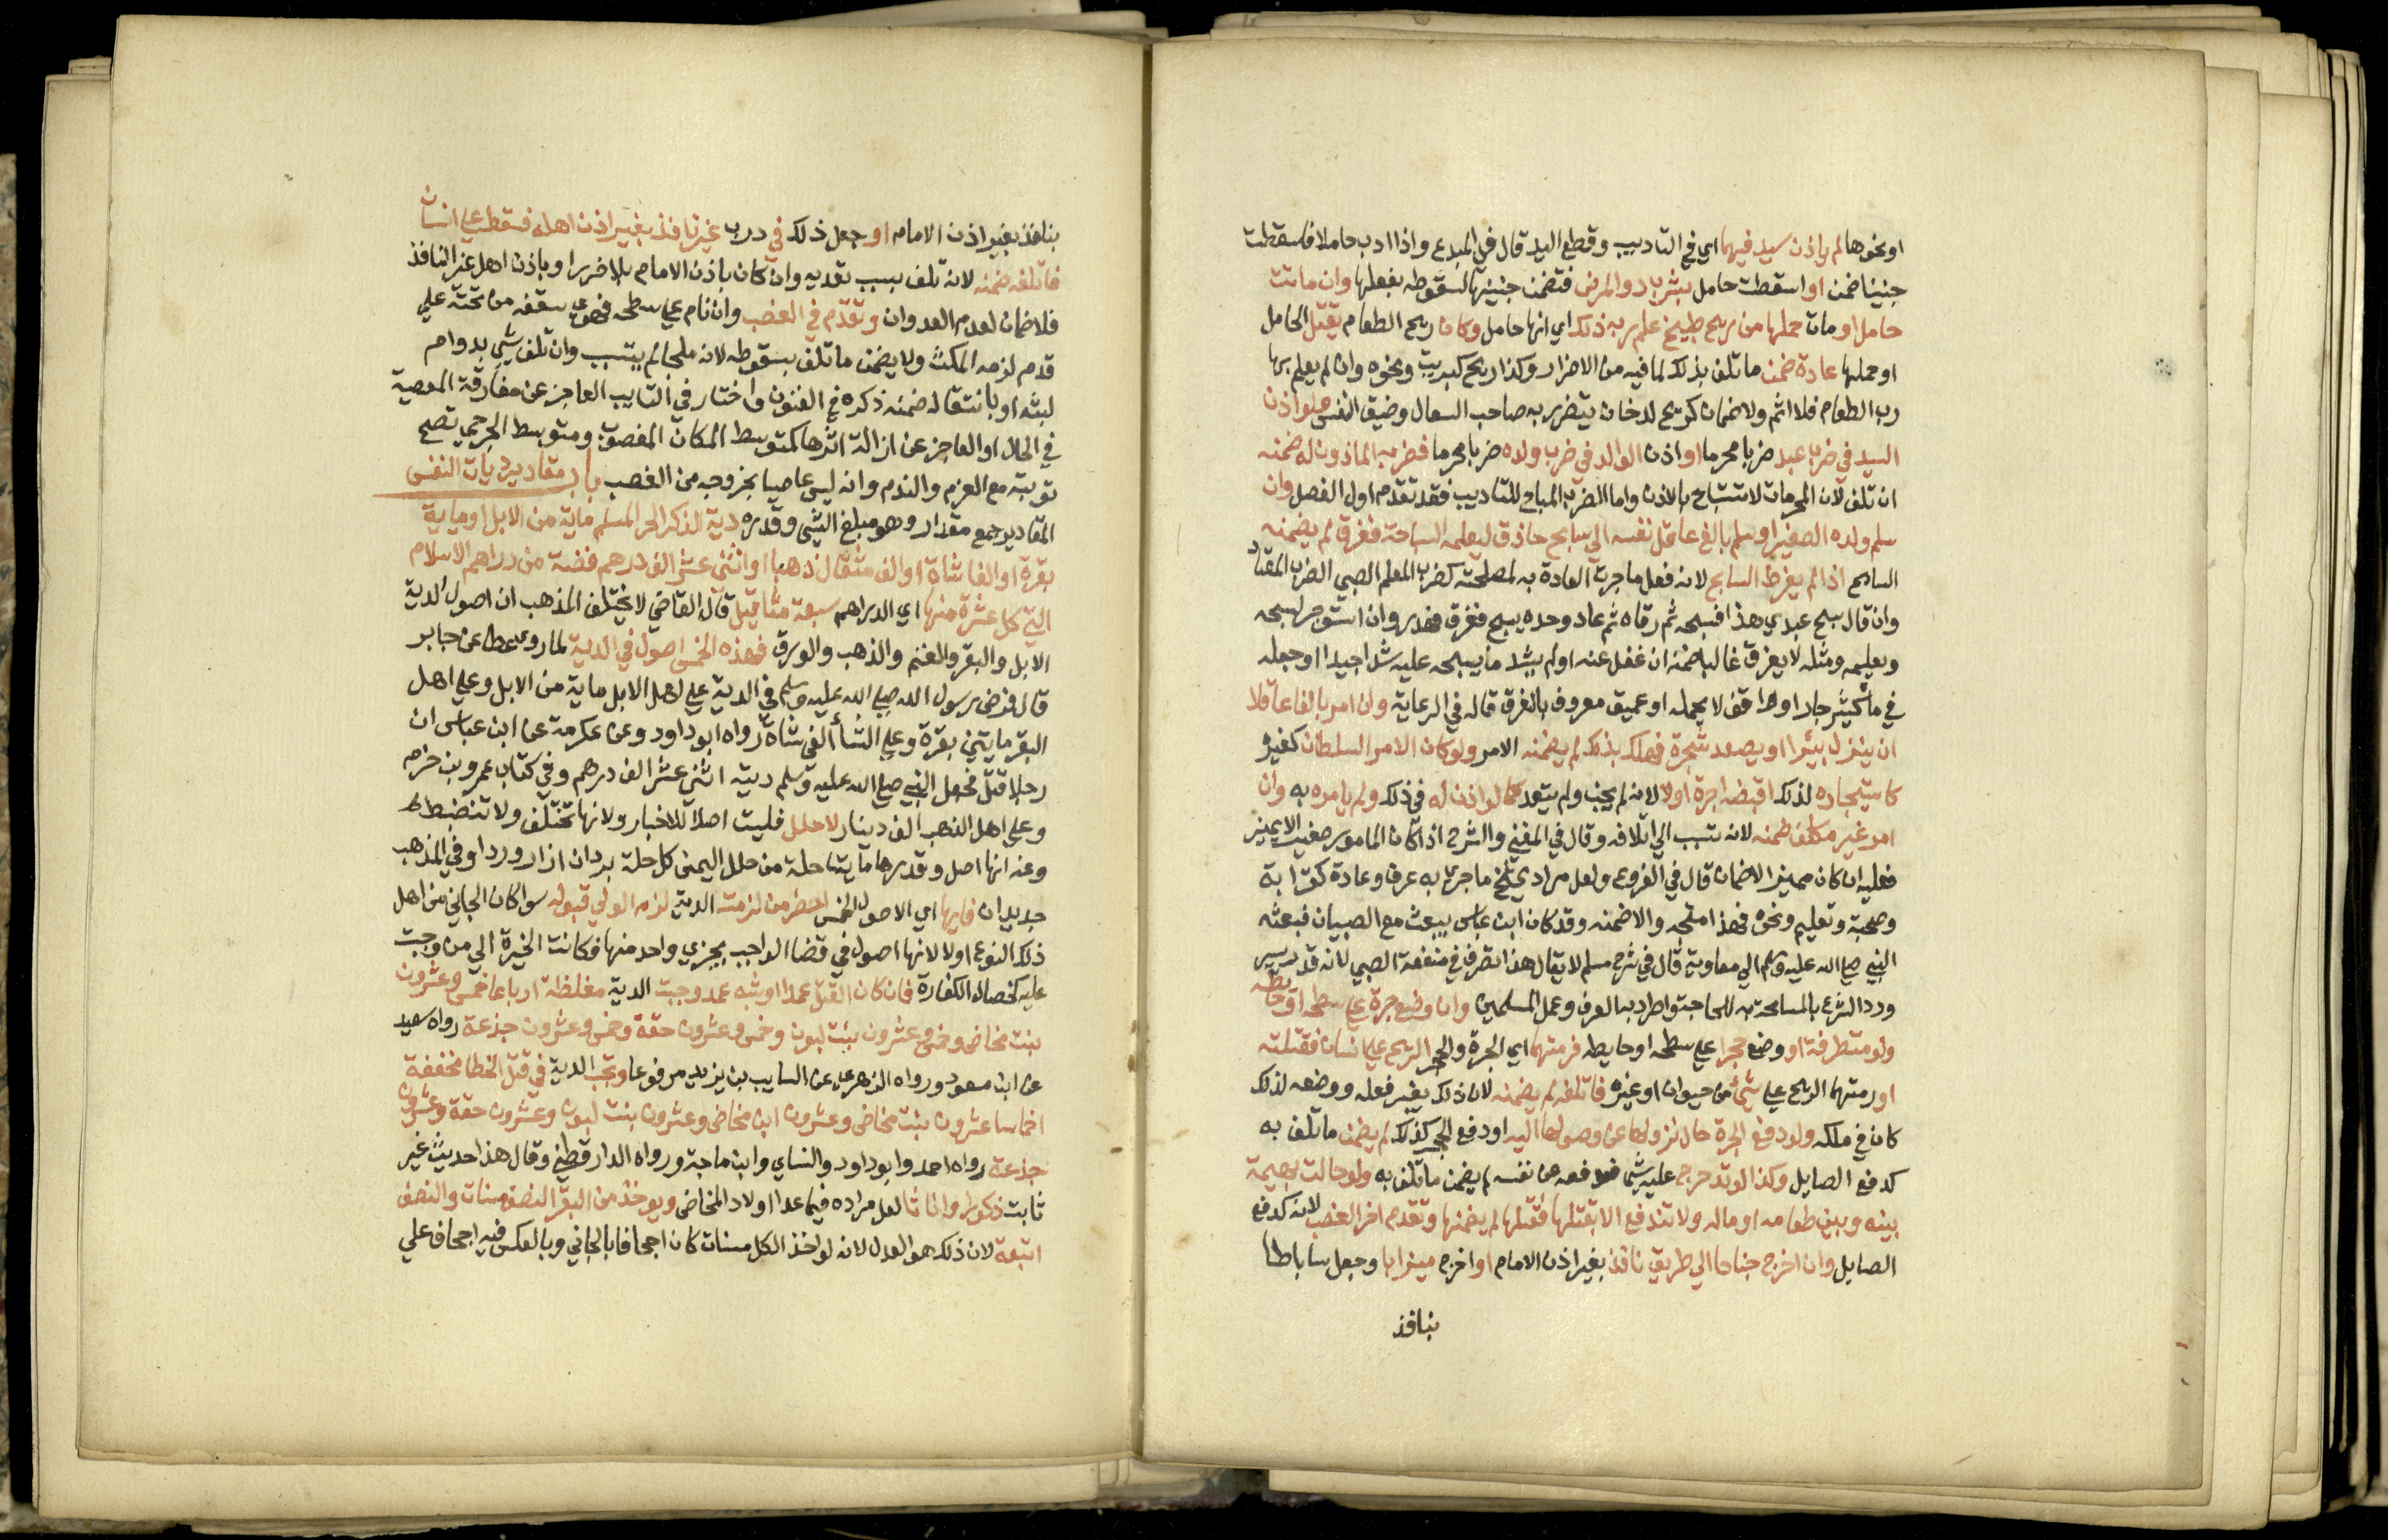 او نحوها لم ياذن سيد فيهما اي في التاديب وقطع اليد قال في المبدع واذا ادب حاملا فاسقطت
جنينا ضمن او اسقطت حامل بشرب دوا لمرض فتضمن جنينها لسقوطه بفعلها وان ماتت
حامل او مات حملها من ريح طبيخ علم ربه ذلك اي انها حامل وكان ريح الطعام يقتل الحامل
او حملها عادة ضمن ما تلف بذلك لما فيه من الاضرار وكذا ريح كبريت ونحوه وان لم يعلم بها
رب الطعام فلا اثم ولا ضمان كريح لدخان يتضرر به صاحب السعال وضيق النفس ولو اذن
السيد في ضرب عبد ضربا محرما او اذن الوالد في ضرب ولده ضربا محرما فضربه الماذون له ضمنه
ان تلف لان المحرمات لا تستباح بالاذن واما الضرب المباح للتاديب فقد تقدم اول الفصل وان
سلم ولده الصغير او سلم بالغ عاقل نفسه الي سابح حاذق ليعلمه السباحة فغرق لم يضمنه
السابح اذا لم يفرط السابح لانه فعل ما جرت العادة به لمصلحته كضرب المعلم الصبي الضرب المعتاد
وان قال سبح عبدي هذا فسبحه ثم رقاه ثم عاد وحده يسبح فغرق فهدر وان استوجر لسبحه
وتعليمه ومثله لا يغرق غالبا ضمنه ان غفل عنه او لم يشد ما يسبحه عليه شدا جيدا او جعله
في ما كثير جار او واقف لا يحمله او عميق معروف بالغرق قاله في الرعاية وان امر بالغا عاقلا
ان ينزل بيرا او يصعد شجرة فهلك بذلك لم يضمنه الامر ولو كان الامر السلطان كغيره
كاستيجاره لذلك اقبضه اجرة اولا لانه لم يجن ولم يتعد كما لو اذن له في ذلك ولم يامره به وان
امر غير مكلف ضمنه لانه تسبب الي اتلافه وقال في المغني والشرح اذا كان المامور صغير لا يميز
فعليه ان كان مميزا لا ضمان قال في الفروع ولعل مراد الشيخ ما جرت به عرف وعادة كقرابة
وصحبة وتعليم ونحوه فهذا متجه والا ضمنه وقد كان ابن عباس يبعث مع الصبيان فبعثه
النبي صلي الله عليه وسلم الي معاوية قال في شرح مسلم لا يقال هذا تصرف في منفعة الصبي لانه قدر يسير
ورد الشرع بالمسامحة به للحاجة واطرد به العرف وعمل المسلمين وان وضع جرة علي سطحه او حايطه
ولو متطرفة او وضع حجرا علي سطحه او حايطه فرمتهما اي الجرة والحجر الريح علي انسان فقتلته
او رمتهما الريح علي شي من حيوان او غيره فاتلفه لم يضمنه لان ذلك بغير فعله ووضعه لذلك
كان في ملكه ولو دفع الجرة حال نزولها عن وصولها اليه او دفع الحجر كذلك لم يضمن ما تلف به
كدفع الصايل وكذا لو تدحرج عليه شي فدفعه عن نفسه لم يضمن ما تلف به ولو حالت بهيمة
بينه وبين طعامه او ماله ولا تندفع الا بقتلها فقتلها لم يضمنها وتقدم اخر الغصب لانه كدفع
الصايل وان اخرج جناحا الي طريق نافذ بغير اذن الامام او اخرج ميزابا وجعل ساباطا
بنافذ
بنافذ بغير اذن الامام او جعل ذلك في درب غير نافذ بغير اذن اهله فسقط علي انسان
فاتلفه ضمنه لانه تلف بسبب تعديه وان كان باذن الامام بلا ضرر او باذن اهل غير النافذ
فلا ضمان لعدم العدوان وتقدم في الغصب وان نام علي سطحه فهوي سقفه من تحته علي
قدم لزمه المكث ولا يضمن ما تلف بسقوطه لانه ملجا لم يتسبب وان تلف شي بدوام
لبثه او بانتقاله ضمنه ذكره في الفنون واختار في التايب العاجز عن مفارقة المعصية
في الحال او العاجز عن ازالة اثرها كمتوسط المكان المغصوب ومتوسط الجرحي تصح
توبته مع العزم والندم وانه ليس عاصيا بخروجه من الغصب باب مقادير ديات النفس
المقادير جمع مقدار وهو مبلغ الشي وقدره دية الذكر الحر المسلم ماية من الابل او ماية
بقرة او الفا شاة او الف مثقال ذهبا او اثني عشر الف درهم فضة من دراهم الاسلام
التي كل عشرة منها اي الدراهم سبعة مثاقيل قال القاضي لا يختلف المذهب ان اصول الدية
الابل والبقر والغنم والذهب والورق فهذه الخمس اصول في الدية لما روي عطا عن جابر
قال فرض رسول الله صلي الله عليه وسلم في الدية علي اهل الابل ماية من الابل وعلي اهل
البقر مايتي بقرة وعلي الشا الفي شاة رواه ابو داود وعن عكرمة عن ابن عباس ان
رجلا قتل فجعل النبي صلي الله عليه وسلم ديته اثني عشر الف درهم وفي كتاب عمرو بن حزم
وعلي اهل الذهب الف دينار لا حلل فليست اصلا للاخبار ولانها تختلف ولا تنضبط
وعنه انها اصل وقدرها مايتا حلة من حلل اليمن كل حلة بردان ازار وردا وفي المذهب
جديدان فايها اي الاصول الخمس احضر من لزمته الدية لزم الولي قبوله سوا كان الجاني من اهل
ذلك النوع اولا لانها اصول في قضا الواجب يجزي واحد منها فكانت الخيرة الي من وجبت
عليه كخصال الكفارة فان كان القتل عمدا او شبه عمد وجبت الدية مغلظة ارباعا خمس وعشرون
بنت مخاض وخمس وعشرون بنت لبون وخمس وعشرون حقة وخمس وعشرون جذعة رواه سعيد
عن ابن مسعود ورواه الزهري عن السايب بن يزيد مرفوعا وتجب الدية في قتل الخطا مخففة
اخماسا عشرون بنت مخاض وعشرون ابن مخاض وعشرون بنت لبون وعشرون حقة وعشرون
جذعة رواه احمد وابو داود والنساي وابن ماجة ورواه الدارقطني وقال هذا حديث غير
ثابت ذكورا واناثا لعل مراده فيما عدا اولاد المخاض ويوخذ من البقر النصف مسنات والنصف
اتبعة لان ذلك هو العدل لانه لو اخذ الكل مسنات كان اجحافا بالجاني وبالعكس فيه اجحاف علي